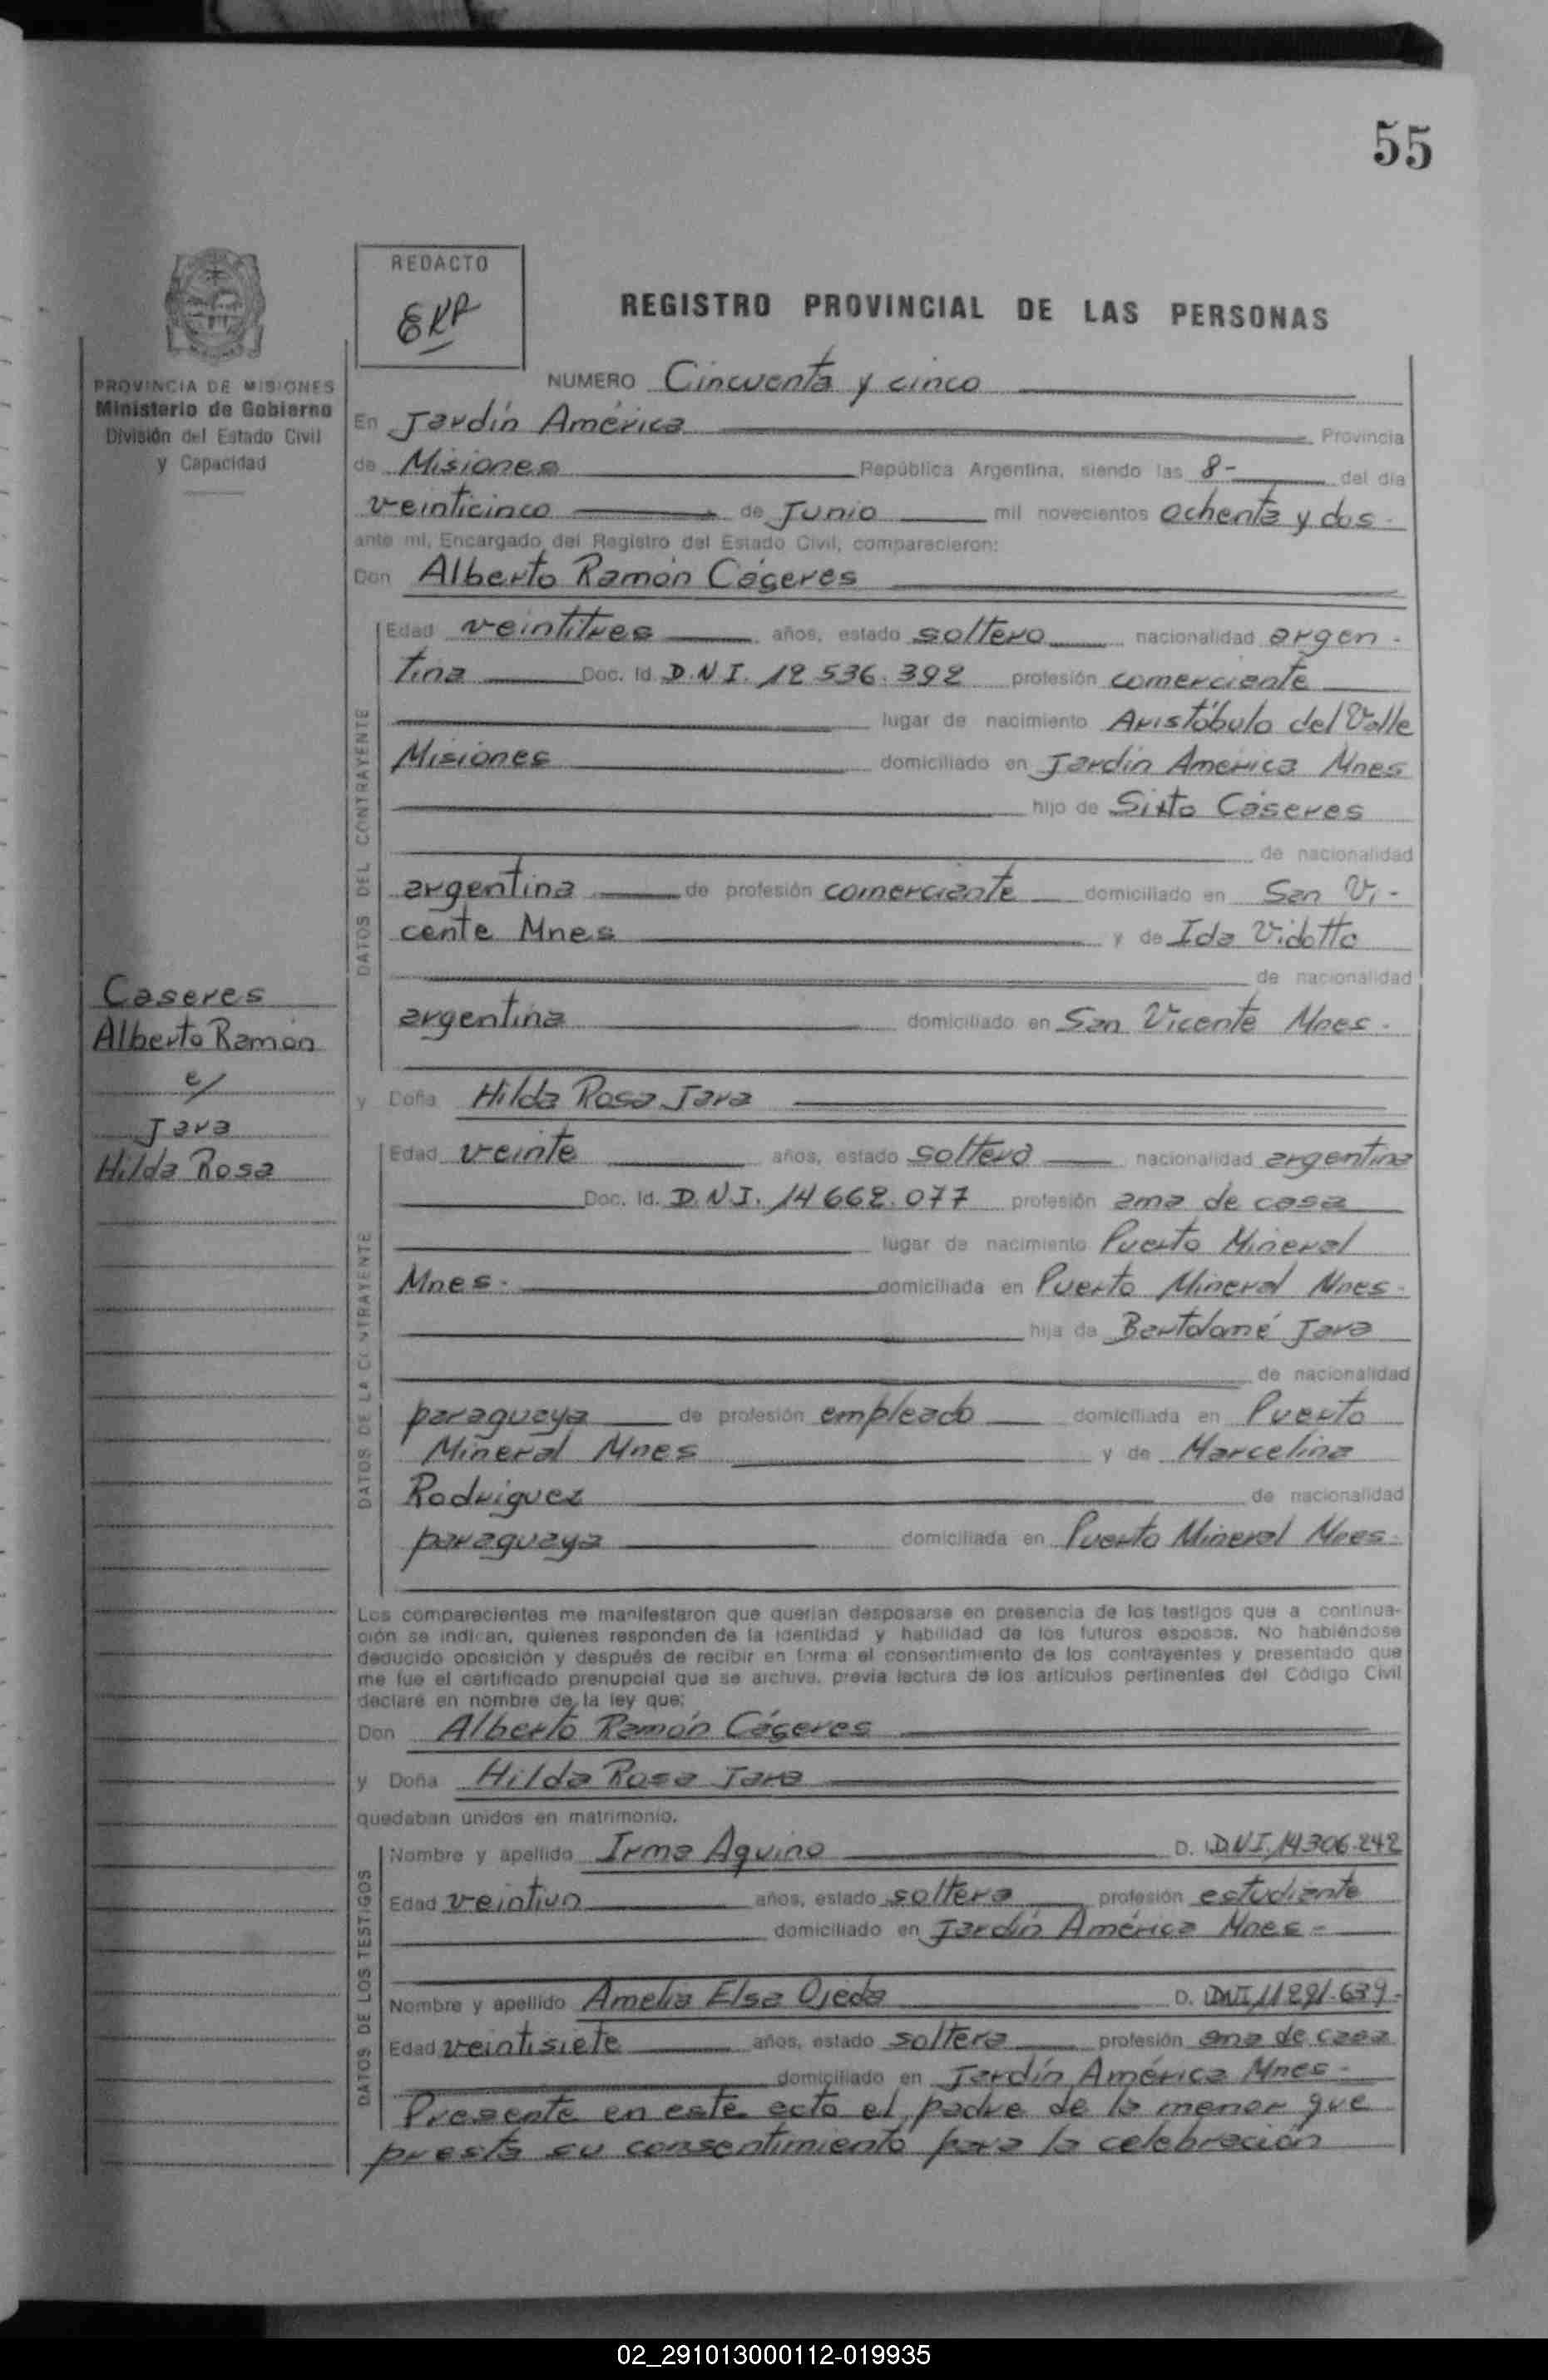 55
REDACTO
EKR
REGISTRO PROVINCIAL DE LAS PERSONAS
PROVINCIA DE MISIONES
Ministerio de Gobierno
División del Estado Civil
y Capacidad
NUMERO Cincuenta y cinco
En Jardín América Provincia
de Misiones República Argentina, siendo las 8- del día
veinticinco de Junio mil novecientos ochenta y dos.
ante mí, Encargado del Registro del Estado Civil, comparecieron:
Don Alberto Ramón Cáseres
DATOS DEL CONTRAYENTE
Edad veintitres años, estado soltero nacionalidad argen-
tina Doc. Id. D.N.I. 12.536.392 profesión comerciante
lugar de nacimiento Aristóbulo del Valle
Misiones domiciliado en Jardín América Mnes
hijo de Sixto Cáseres
de nacionalidad
argentina de profesión comerciante domiciliado en San Vi-
cente Mnes y de Ida Vidotto
de nacionalidad
argentina domiciliado en San Vicente Mnes.
Caseres
Alberto Ramón
c/
Jara
Hilda Rosa
y Doña Hilda Rosa Jara
DATOS DE LA CONTRAYENTE
Edad veinte años, estado soltera nacionalidad argentina
Doc. Id. D.N.I. 14.662.077 profesión ama de casa
lugar de nacimiento Puerto Mineral
Mnes. domiciliada en Puerto Mineral Mnes.
hija de Bartolomé Jara
de nacionalidad
paraguaya de profesión empleado domiciliada en Puerto
Mineral Mnes y de Marcelina
Rodriguez de nacionalidad
paraguaya domiciliada en Puerto Mineral Mnes.
Los comparecientes me manifestaron que querían desposarse en presencia de los testigos que a continua-
ción se indican, quienes responden de la identidad y habilidad de los futuros esposos. No habiéndose
deducido oposición y después de recibir en forma el consentimiento de los contrayentes y presentado que
me fue el certificado prenupcial que se archiva, previa lectura de los artículos pertinentes del Código Civil
declaré en nombre de la ley que:
Don Alberto Ramón Cáseres
y Doña Hilda Rosa Jara
quedaban unidos en matrimonio.
DATOS DE LOS TESTIGOS
Nombre y apellido Irma Aquino D. I. DNI. 14.306.242
Edad veintiun años, estado soltera profesión estudiante
domiciliado en Jardín América Mnes-
Nombre y apellido Amelia Elsa Ojeda D. I. DNI 11.291.639-
Edad veintisiete años, estado soltera profesión ama de casa
domiciliado en Jardín América Mnes-
Presente en este acto el padre de la menor que
presta su consentimiento para la celebración
02_291013000112-019935